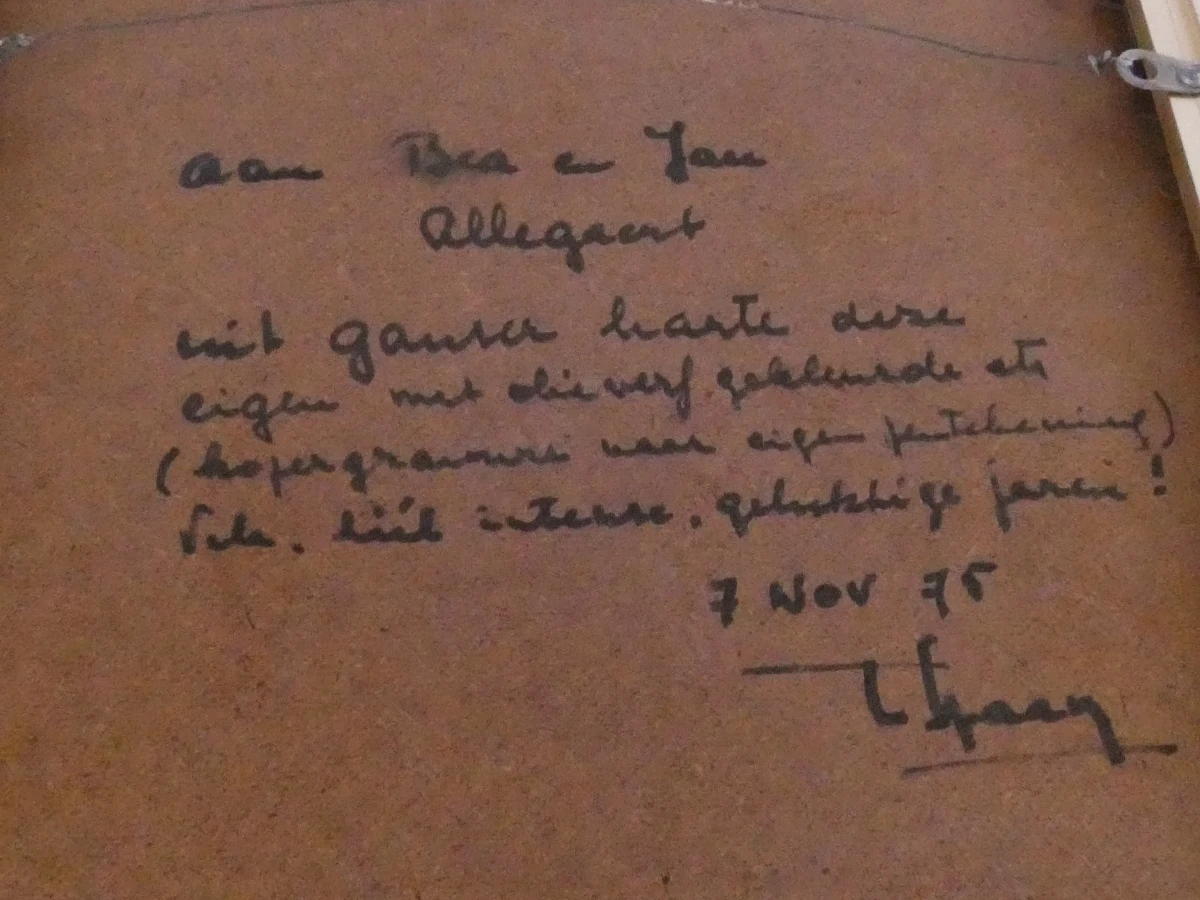 aan Bea en Jan
Allegaert
uit ganser harte deze
eigen met olieverf gekleurde ets
(kopergravure naar eigen pentekening)
Vele, intense, gelukkige jaren!
7 NOV 75